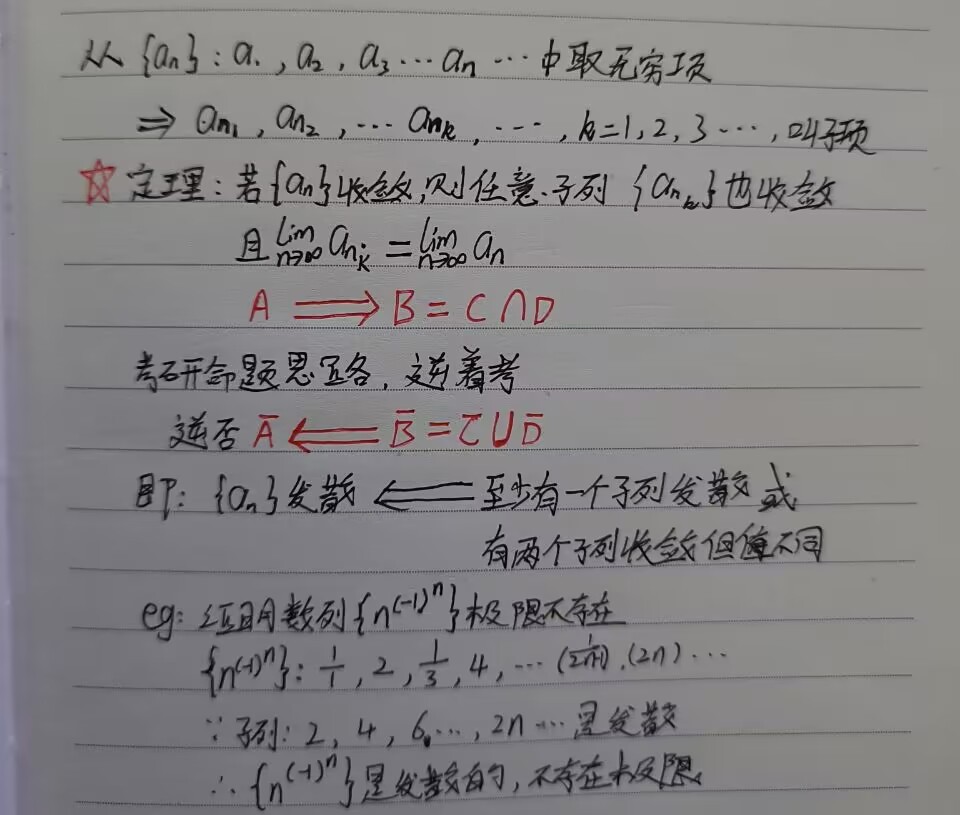 从{aₙ}: a₁, a₂, a₃⋯aₙ⋯中取无穷项
⇒ aₙ₁, aₙ₂, ⋯aₙₖ, ⋯, k=1, 2, 3⋯, 叫子项
☆ 定理: 若{aₙ}收敛, 则任意子列 {aₙₖ}也收敛
且 lim n→∞ aₙₖ = lim n→∞ aₙ
A ⟹ B = C∩D
考研命题思路, 逆着考
逆否 A̅ ⟸ B̅ = C̅∪D̅
即: {aₙ}发散 ⟸ 至少有一个子列发散 或
有两个子列收敛但值不同
eg: 证明数列{n^(-1)^n}极限不存在
{n^(-1)^n}: 1/1, 2, 1/3, 4, ⋯ (1/(2n-1)), (2n)⋯
∵ 子列: 2, 4, 6, ⋯, 2n⋯是发散
∴ {n^(-1)^n}是发散的, 不存在极限